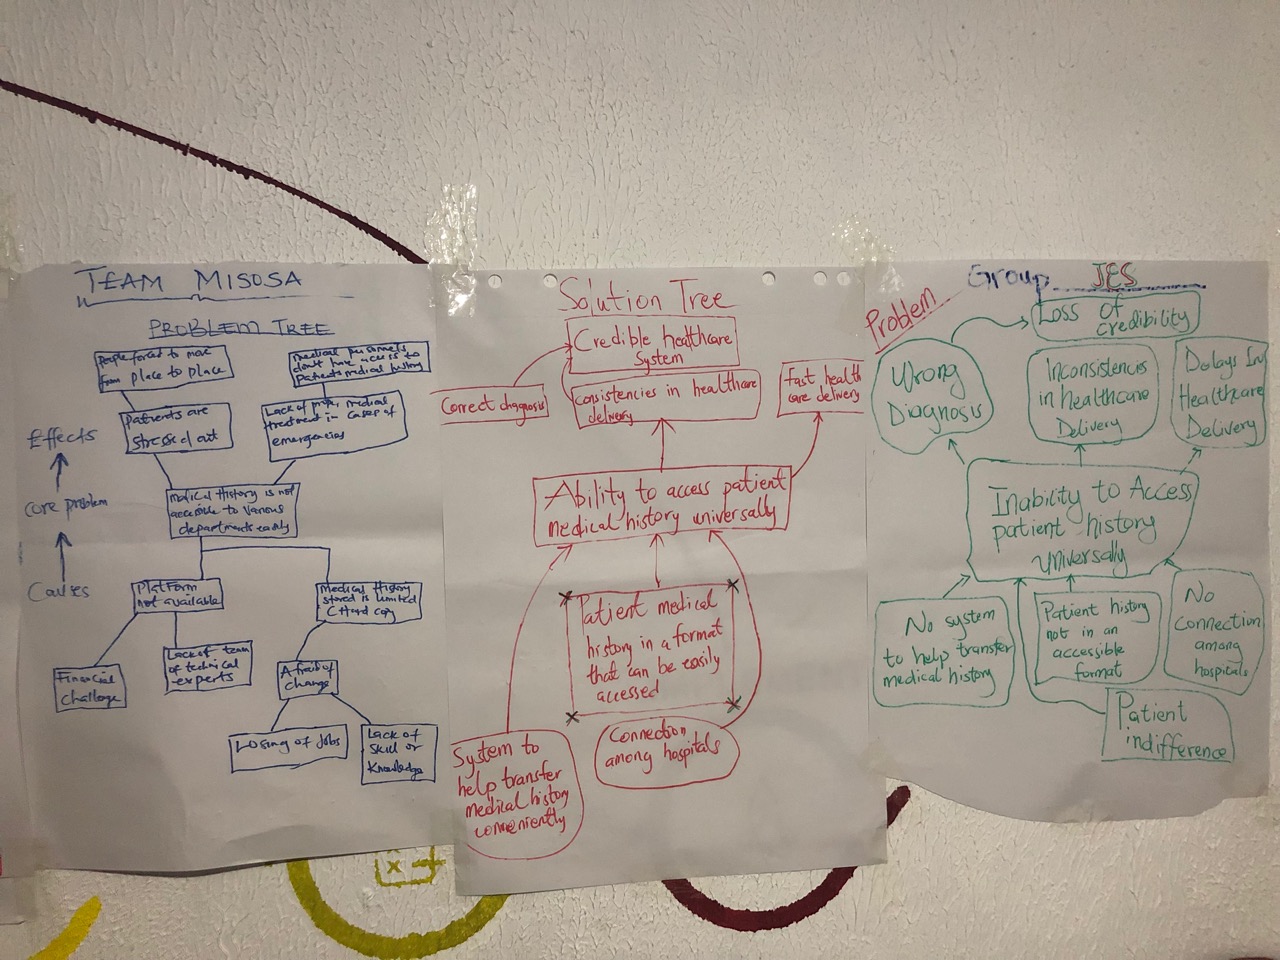 TEAM MISOSA
PROBLEM TREE
People forced to move
from place to place
medical personnels
don't have access to
patients medical history
Patients are
stressed out
Lack of proper medical
treatment in cases of
emergencies
Effects
core problem
Causes
Medical History is not
accessible to various
departments easily
Platform
not available
Medical History
stored is limited
(Hard copy
Financial
challenge
Lack of team
of technical
experts
Afraid of
change
Losing of jobs
Lack of
skill or
knowledge
Solution Tree
Credible healthcare
system
Correct diagnosis
Consistencies in healthcare
delivery
Fast health
care delivery
Ability to access patient
medical history universally
Patient medical
history in a format
that can be easily
accessed
Connection
among hospitals
System to
help transfer
medical history
conveniently
Group JES
Problem
Loss of
credibility
Wrong
Diagnosis
Inconsistencies
in healthcare
Delivery
Delays In
Healthcare
Delivery
Inability to Access
patient history
universally
No system
to help transfer
medical history
Patient history
not in an
accessible
format
No
connection
among
hospitals
Patient
indifference
x